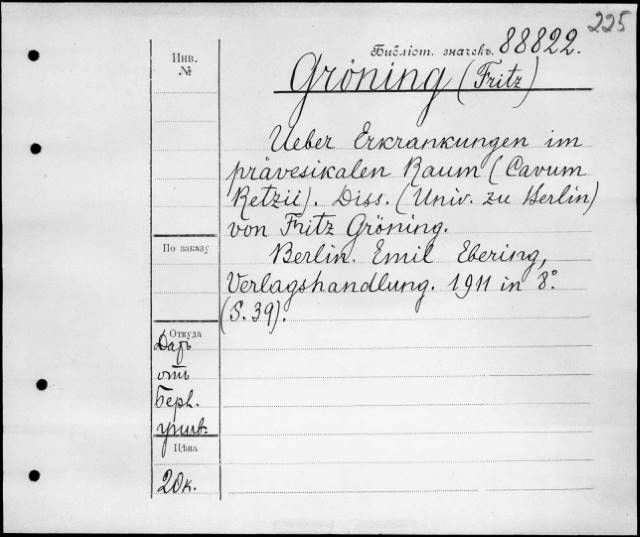 225
Библіот. значекъ. 88822.
Инв.
№
Gröning (Fritz)
Ueber Erkrankungen im
prävesikalen Raum (Cavum
Retzii). Diss. (Univ. zu Berlin)
von Fritz Gröning.
По заказу
Berlin. Emil Ebering,
Verlagshandlung. 1911 in 8°.
(S. 39).
Откуда
Даръ
отъ
Берл.
унив.
Цѣна
20к.